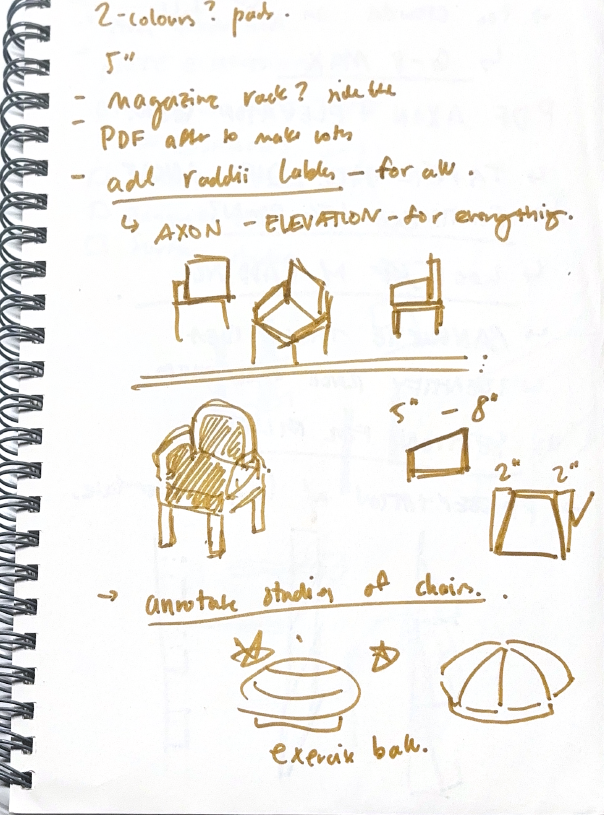 2-colours? pads.
5"
- magazine rack? side
- PDF after to make notes
- add raddii lables - for all.
↳ AXON - ELEVATION - for everything.
5" - 8"
2" 2"
→ annotate studies of chairs.
exercise ball.